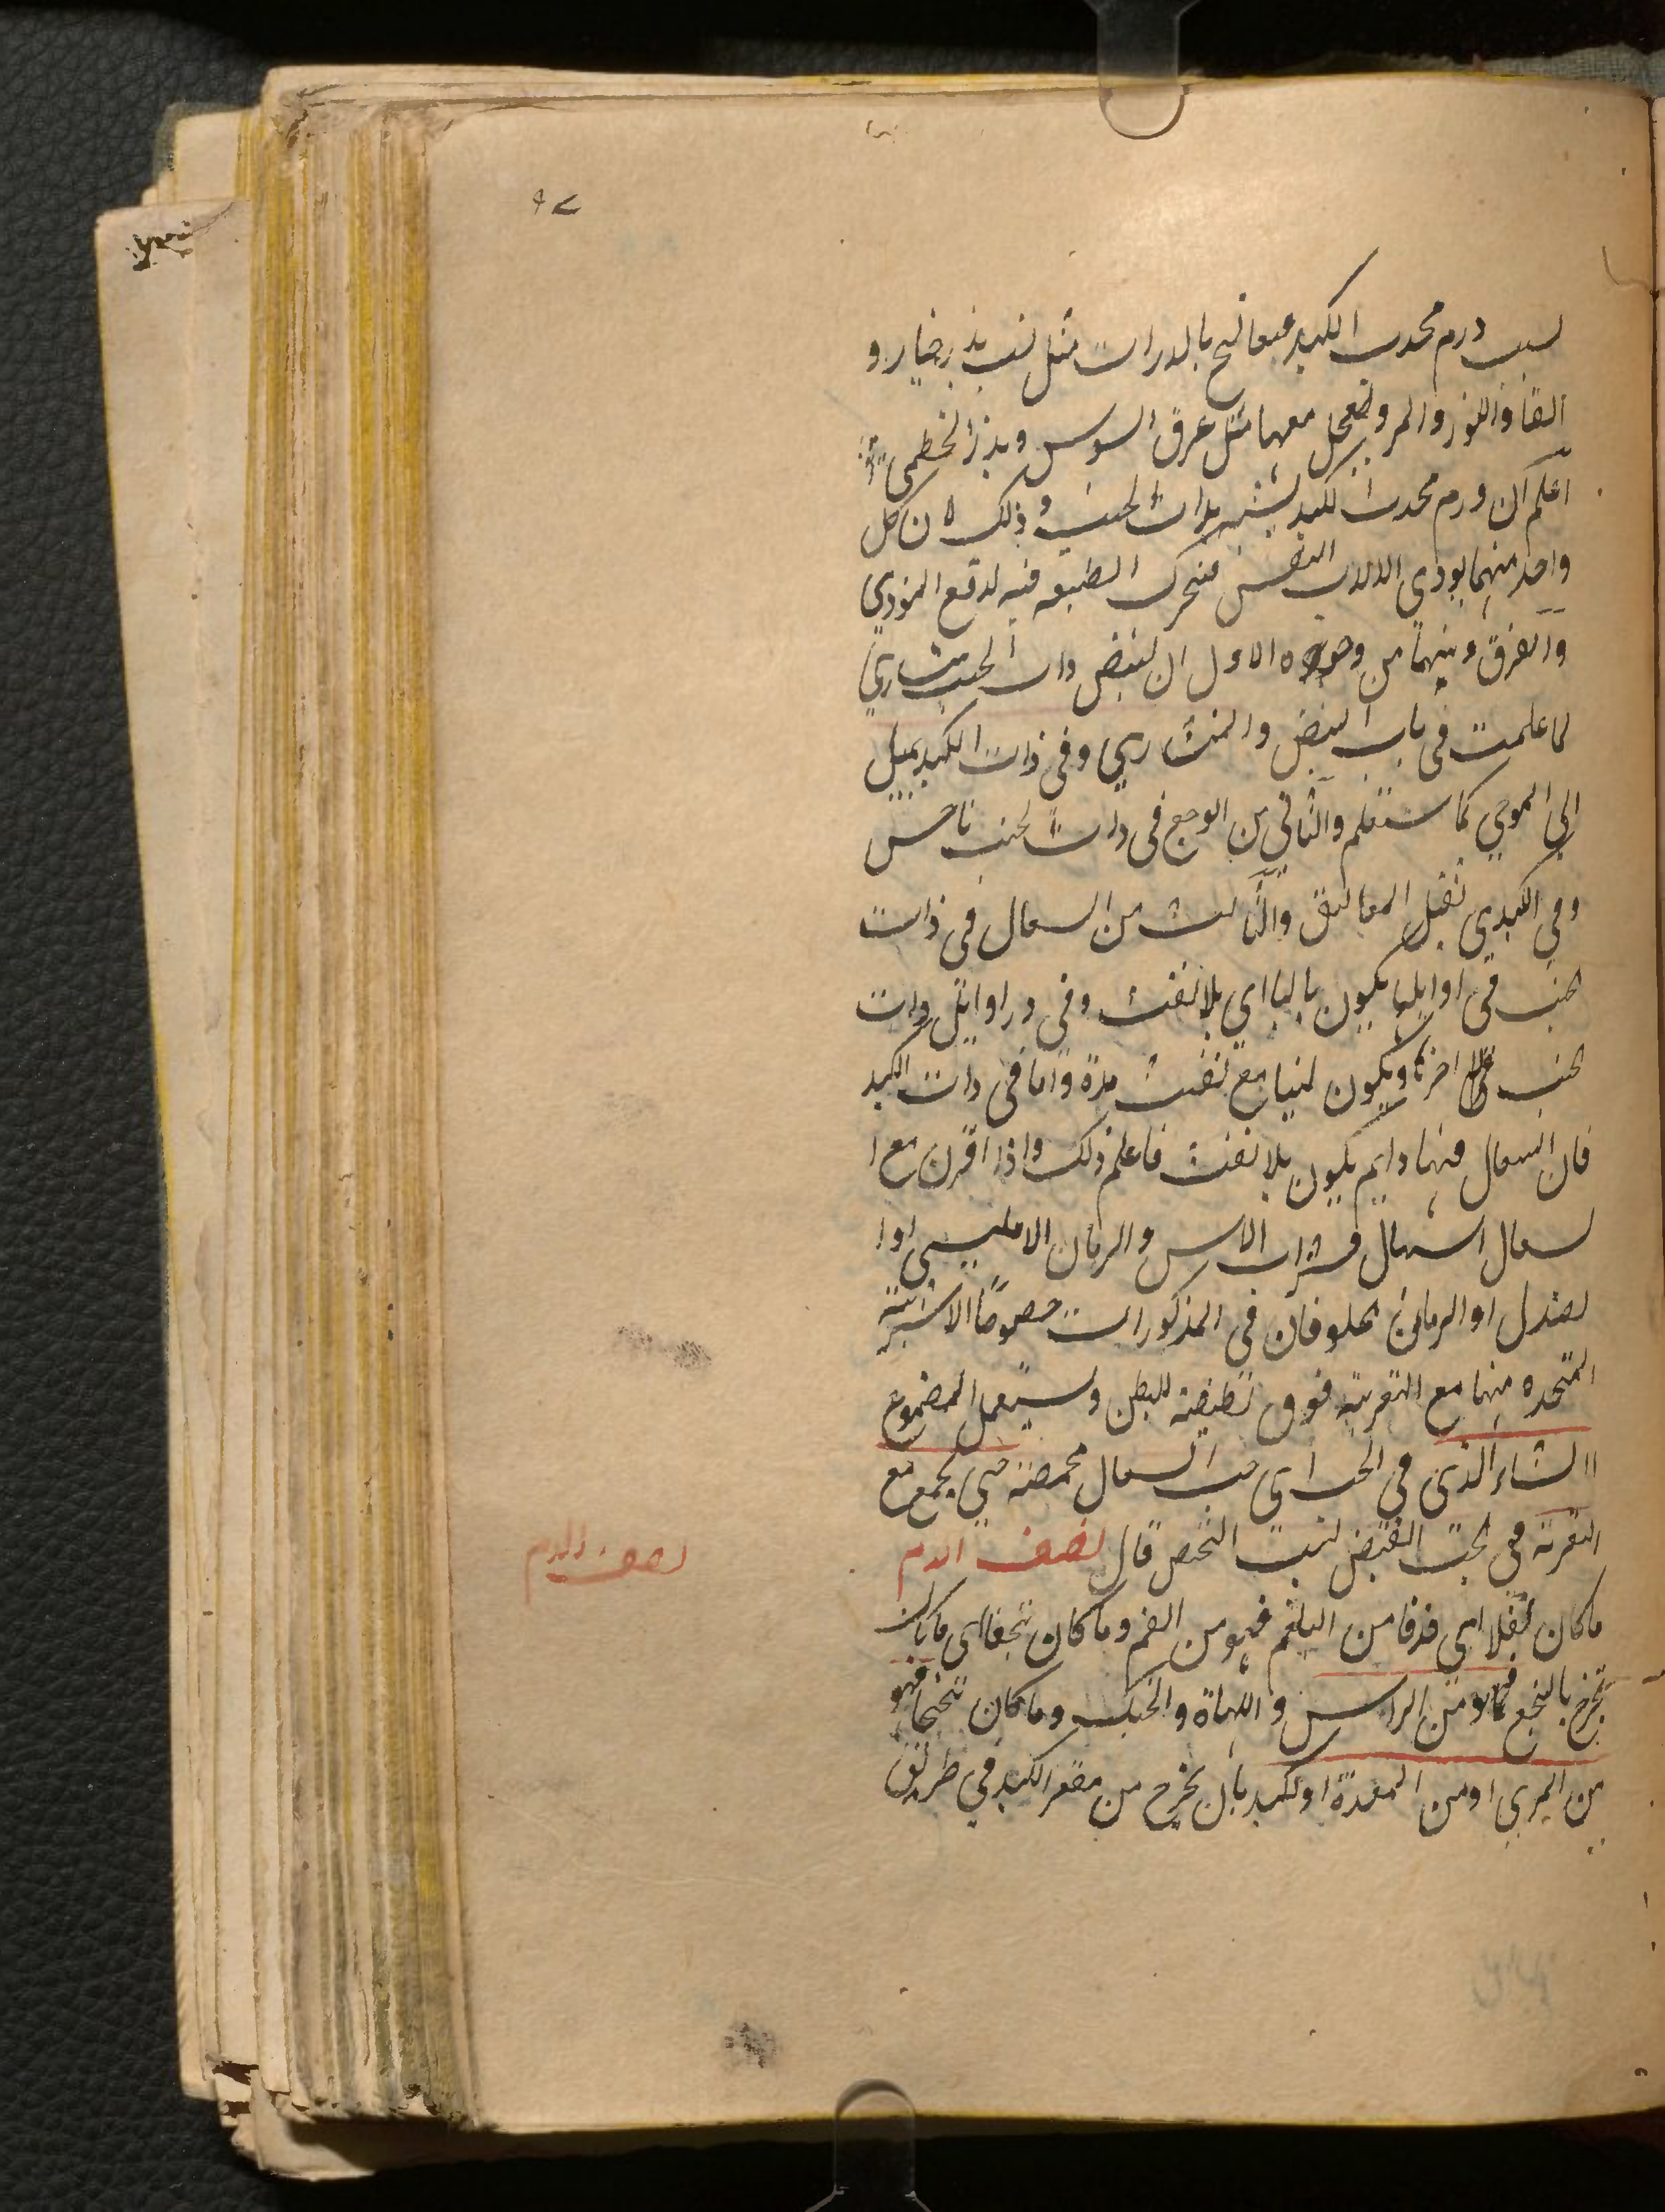 ٩٧
لسبب ورم محدب الكبد فيعالج بالمدرات مثل لب بذر خيار و
القثا واللوز والمر وتجعل معها مثل عرق السوس وبذر الخطمي
اعلم ان ورم محدب الكبد يشتبه بذات الجنب وذلك لان كل
واحد منهما يوذي الالات النفس فتحرك الطبيعه فيه لدفع الموذي
والفرق وبينهما من وجوه الاول ان لنبض ذات الجنب منشاري
لما علمت في باب النبض والمنشاري وفي ذات الكبد يميل
الى الموجي كما ستعلم والثاني من الوجع في ذات الجنب ناخس
وفي الكبدي ثقيل المعاليق والثالث من السعال في ذات
الجنب في اوايلها يكون يابسا اي بلا نفث وفي اوايل ذات
الجنب اخرها ويكون لينا مع نفث مدة واما في ذات الكبد
فان السعال فيها دايم يكون بلا نفث فاعلم ذلك واذا اقرن مع ا
لسعال اسهال فشراب الاس والرمان الامليسي او ا
لصندل او الرمان الحلو فان في المذكورات خصوصًا الاشربة
المتخده منها مع التغرية فوق تطيفة للبطن ويستعمل المضموغ
االنشاء الذي في الحب اي حب السعال محمصة حتي يجمع مع
التغرية في تحت القبض لسبب التحمص قال نصف الدم
نصف الدم
ما كان تفلا اي قذفا من البلغم فهو من الفم وما كان تنخعا اي ما كان
تخرج بالنخع فهو من الراس واللهاة والحنك وما كان تنخما فهو
من المري او من المعدة او لكبد بان يخرج من مقعر الكبد في طريق